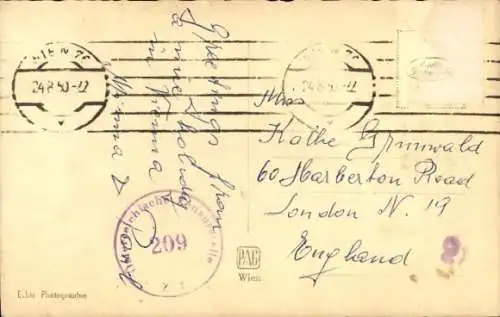 WIEN 76
24.8.50-12
24.8.50-12
Greetings from
a nice holiday
in Vienna
Miss
Kathe Grunwald
60 Harberton Road
London N. 19
England
209
PAG
Wien
Echte Photographie